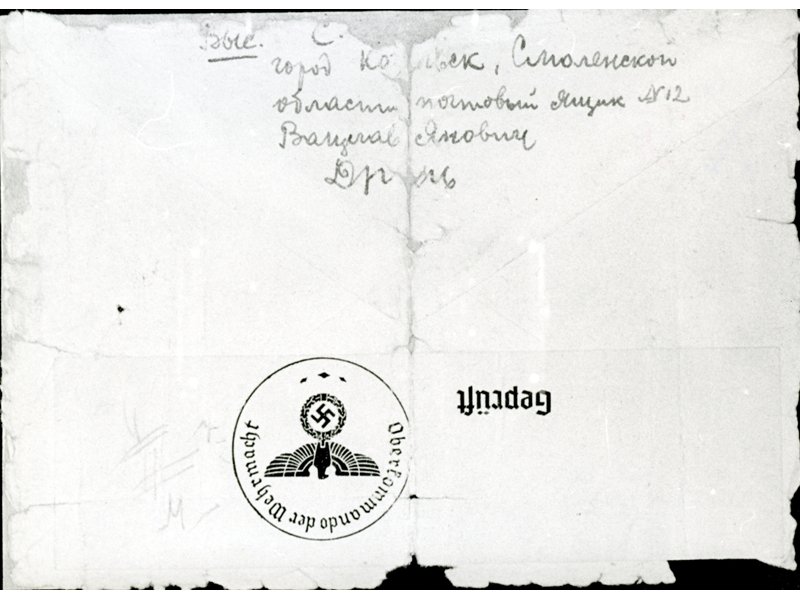 Выс. С.
город Козельск, Смоленской
области почтовый ящик №12
Вацлав Янович
Geprüft
Oberkommando der Wehrmacht